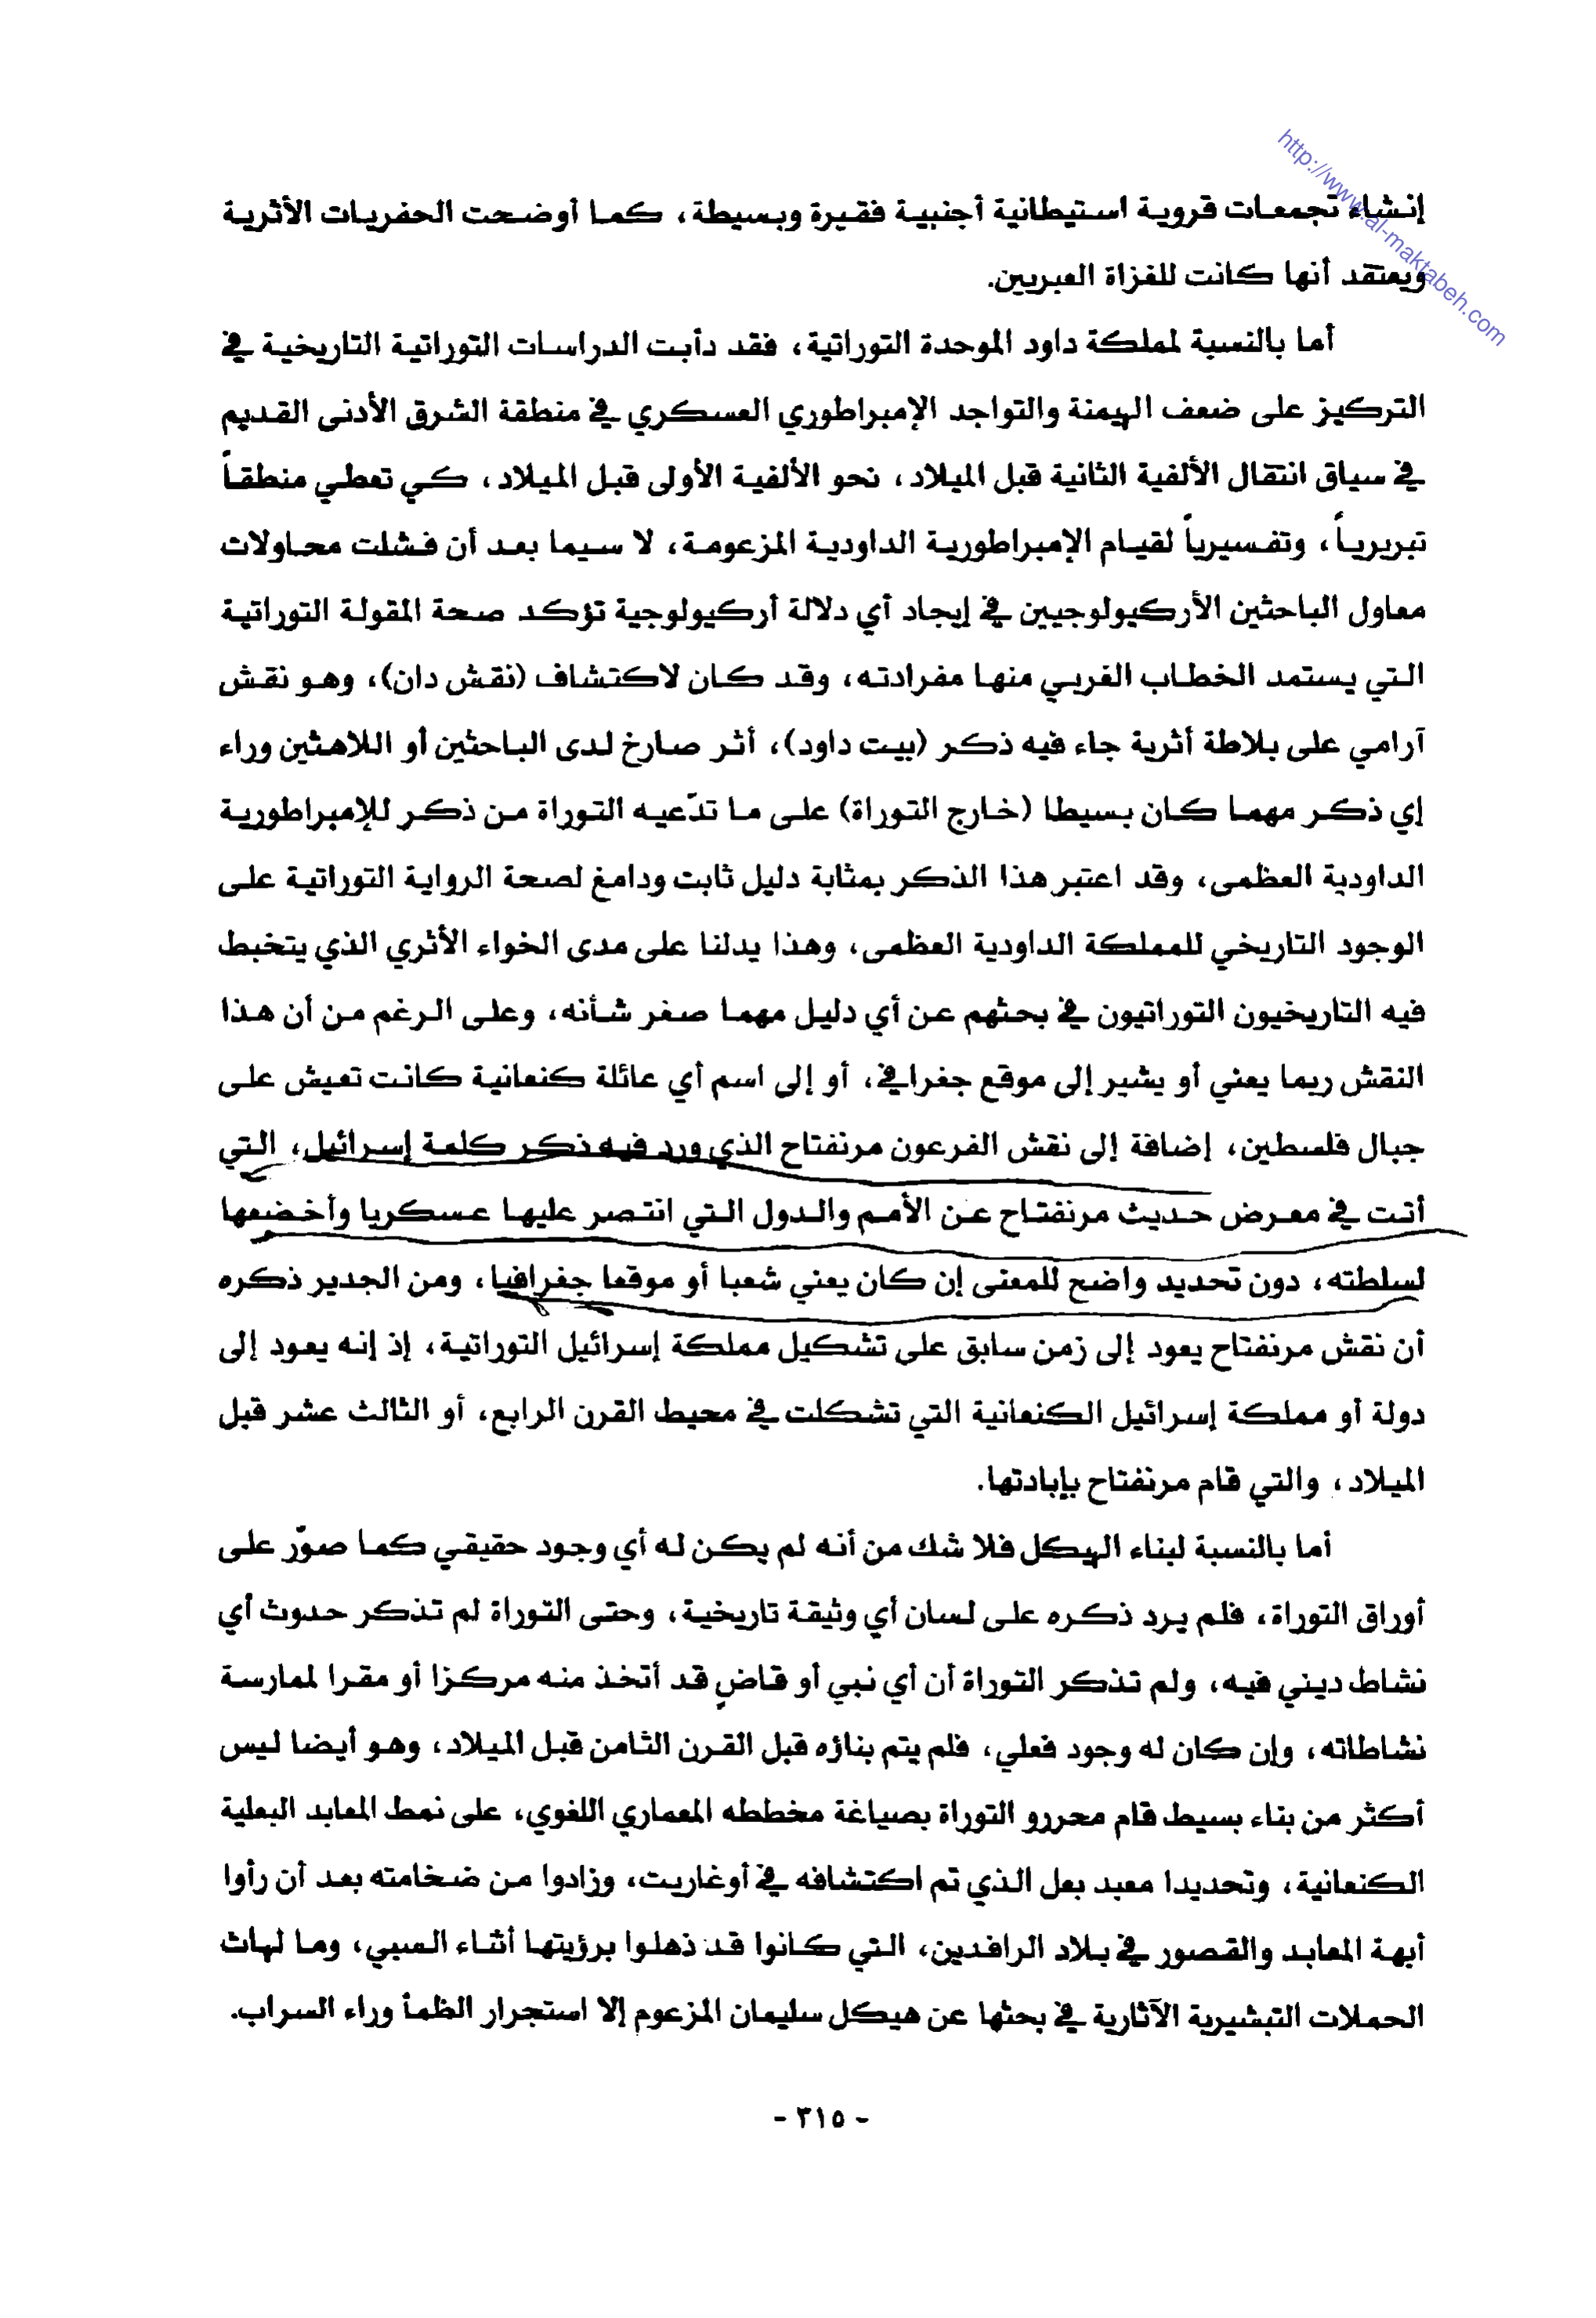 http://www.al-maktabeh.com
إنشاء تجمعات قروية استيطانية أجنبية فقيرة وبسيطة، كما أوضحت الحفريات الأثرية
ويعتقد أنها كانت للغزاة العبريين.
أما بالنسبة لمملكة داود الموحدة التوراتية، فقد دأبت الدراسات التوراتية التاريخية في
التركيز على ضعف الهيمنة والتواجد الإمبراطوري العسكري في منطقة الشرق الأدنى القديم
في سياق انتقال الألفية الثانية قبل الميلاد، نحو الألفية الأولى قبل الميلاد، كي تعطي منطقاً
تبريرياً، وتفسيرياً لقيام الإمبراطورية الداودية المزعومة، لا سيما بعد أن فشلت محاولات
معاول الباحثين الأركيولوجيين في إيجاد أي دلالة أركيولوجية تؤكد صحة المقولة التوراتية
التي يستمد الخطاب الغربي منها مفرداته، وقد كان لاكتشاف (نقش دان)، وهو نقش
آرامي على بلاطة أثرية جاء فيه ذكر (بيت داود)، أثر صارخ لدى الباحثين أو اللاهثين وراء
إي ذكر مهما كان بسيطا (خارج التوراة) على ما تدّعيه التوراة من ذكر للإمبراطورية
الداودية العظمى، وقد اعتبر هذا الذكر بمثابة دليل ثابت ودامغ لصحة الرواية التوراتية على
الوجود التاريخي للمملكة الداودية العظمى، وهذا يدلنا على مدى الخواء الأثري الذي يتخبط
فيه التاريخيون التوراتيون في بحثهم عن أي دليل مهما صغر شأنه، وعلى الرغم من أن هذا
النقش ربما يعني أو يشير إلى موقع جغرافي، أو إلى اسم أي عائلة كنعانية كانت تعيش على
جبال فلسطين، إضافة إلى نقش الفرعون مرنفتاح الذي ورد فيه ذكر كلمة إسرائيل، التي
أتت في معرض حديث مرنفتاح عن الأمم والدول التي انتصر عليها عسكريا وأخضعها
لسلطته، دون تحديد واضح للمعنى إن كان يعني شعبا أو موقعا جغرافيا، ومن الجدير ذكره
أن نقش مرنفتاح يعود إلى زمن سابق على تشكيل مملكة إسرائيل التوراتية، إذ إنه يعود إلى
دولة أو مملكة إسرائيل الكنعانية التي تشكلت في محيط القرن الرابع، أو الثالث عشر قبل
الميلاد، والتي قام مرنفتاح بإبادتها.
أما بالنسبة لبناء الهيكل فلا شك من أنه لم يكن له أي وجود حقيقي كما صوّر على
أوراق التوراة، فلم يرد ذكره على لسان أي وثيقة تاريخية، وحتى التوراة لم تذكر حدوث أي
نشاط ديني فيه، ولم تذكر التوراة أن أي نبي أو قاضٍ قد أتخذ منه مركزا أو مقرا لممارسة
نشاطاته، وإن كان له وجود فعلي، فلم يتم بناؤه قبل القرن الثامن قبل الميلاد، وهو أيضا ليس
أكثر من بناء بسيط قام محررو التوراة بصياغة مخططه المعماري اللغوي، على نمط المعابد البعلية
الكنعانية، وتحديدا معبد بعل الذي تم اكتشافه في أوغاريت، وزادوا من ضخامته بعد أن رأوا
أبهة المعابد والقصور في بلاد الرافدين، التي كانوا قد ذهلوا برؤيتها أثناء السبي، وما لهاث
الحملات التبشيرية الآثارية في بحثها عن هيكل سليمان المزعوم إلا استجرار الظمأ وراء السراب.
- ٣١٥ -